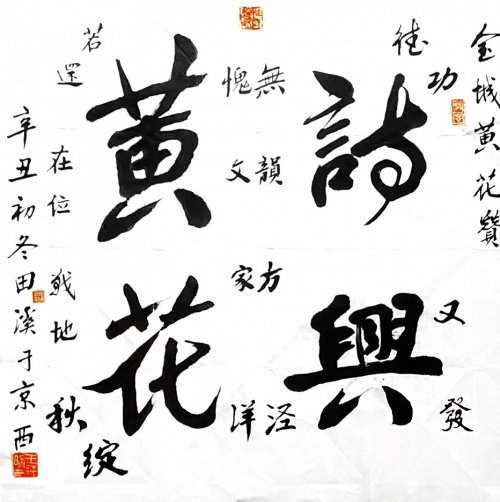 金城黄花贊
功
又發
詩興
無韻
方
愧文
家
黄花
若還
在位
戰地
秋綻
辛丑初冬田溪于京西